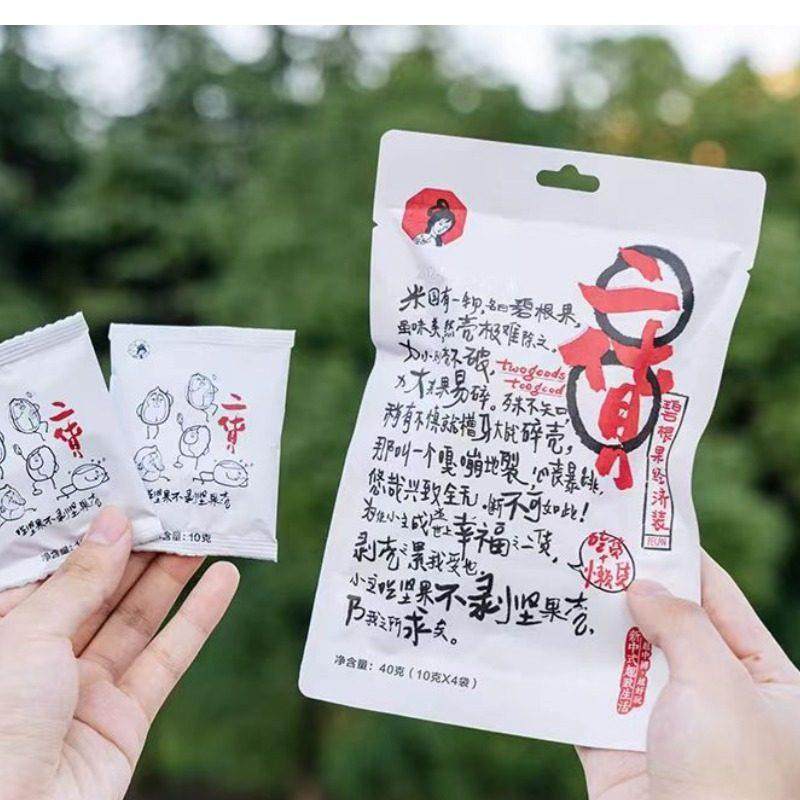 二货
坚果不剥坚果壳
含量：10克
二货
吃坚果不剥坚果壳
净含量：10克
米国有一物，名曰碧根果，
虽味美然壳极难除之。
力小时不破
力大果易碎。殊不知，
稍有不慎就槽牙大战碎壳，
那叫一个嘎嘣地裂，心丧暴跳，
悠哉兴致全无，断不可如此！
为使小主成当世幸福之二货，
剥壳之累我受也，
小主吃坚果不剥坚果壳、
乃我之所求矣。
净含量：40克（10克X4袋）
twogoods
toogood
二货
碧根果经济装
PECAN
吃货
+
懒货
新中式趣致生活